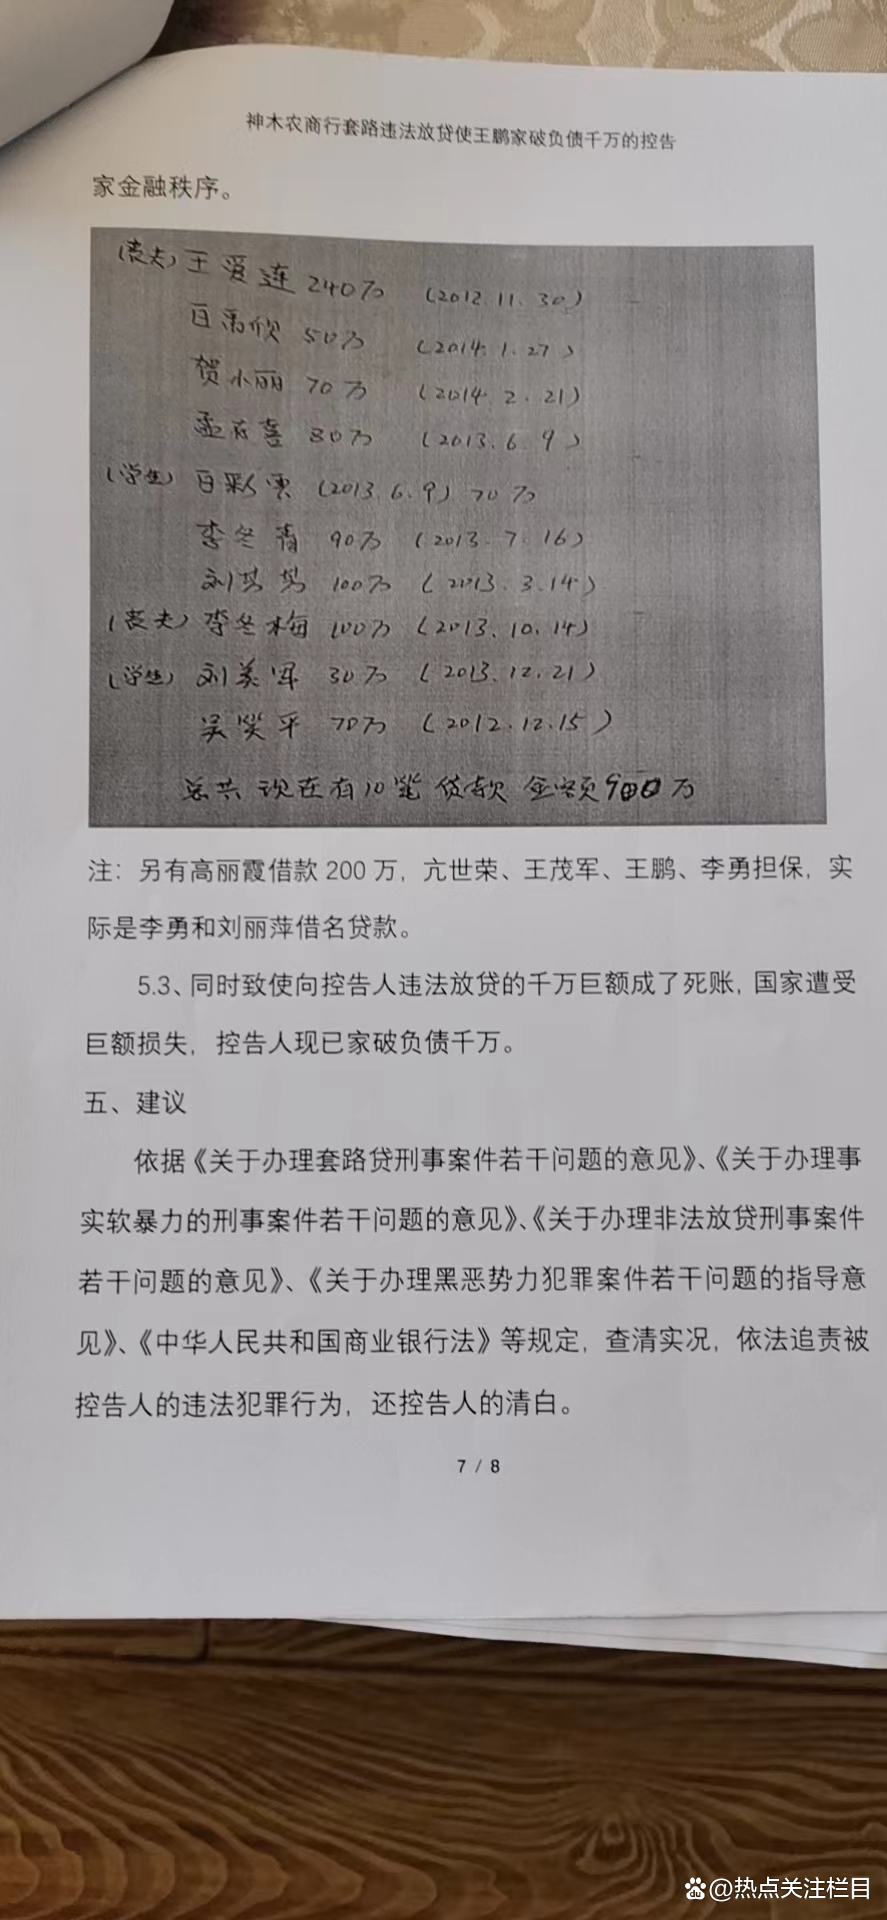 神木农商行套路违法放贷使王鹏家破负债千万的控告
家金融秩序。
(丧夫) 王爱连 240万 (2012.11.30)
白禹欣 50万 (2014.1.27)
贺小丽 70万 (2014.2.21)
喜 80万 (2013.6.9)
(学生) 白彩霞 (2013.6.9) 70万
李冬青 90万 (2013.7.16)
刘 100万 (2013.3.14)
(丧夫) 李冬梅 100万 (2013.10.14)
(学生) 刘美 30万 (2013.12.21)
吴笑平 70万 (2012.12.15)
总共现在有10笔贷款 金额900万
注：另有高丽霞借款 200 万，亢世荣、王茂军、王鹏、李勇担保，实
际是李勇和刘丽萍借名贷款。
5.3、同时致使向控告人违法放贷的千万巨额成了死账，国家遭受
巨额损失，控告人现已家破负债千万。
五、建议
依据《关于办理套路贷刑事案件若干问题的意见》、《关于办理事
实软暴力的刑事案件若干问题的意见》、《关于办理非法放贷刑事案件
若干问题的意见》、《关于办理黑恶势力犯罪案件若干问题的指导意
见》、《中华人民共和国商业银行法》等规定，查清实况，依法追责被
控告人的违法犯罪行为，还控告人的清白。
7 / 8
@热点关注栏目